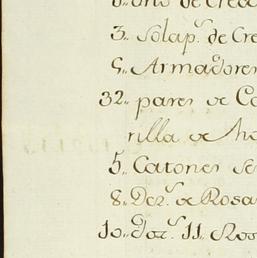 de Crea
3,, Solap.s de Cre
5,, Armadores
32,, pares de Co
rilla de
5,, Catones
8,, Doz.s de Rosa
10,, Doz.s 11,, Ros